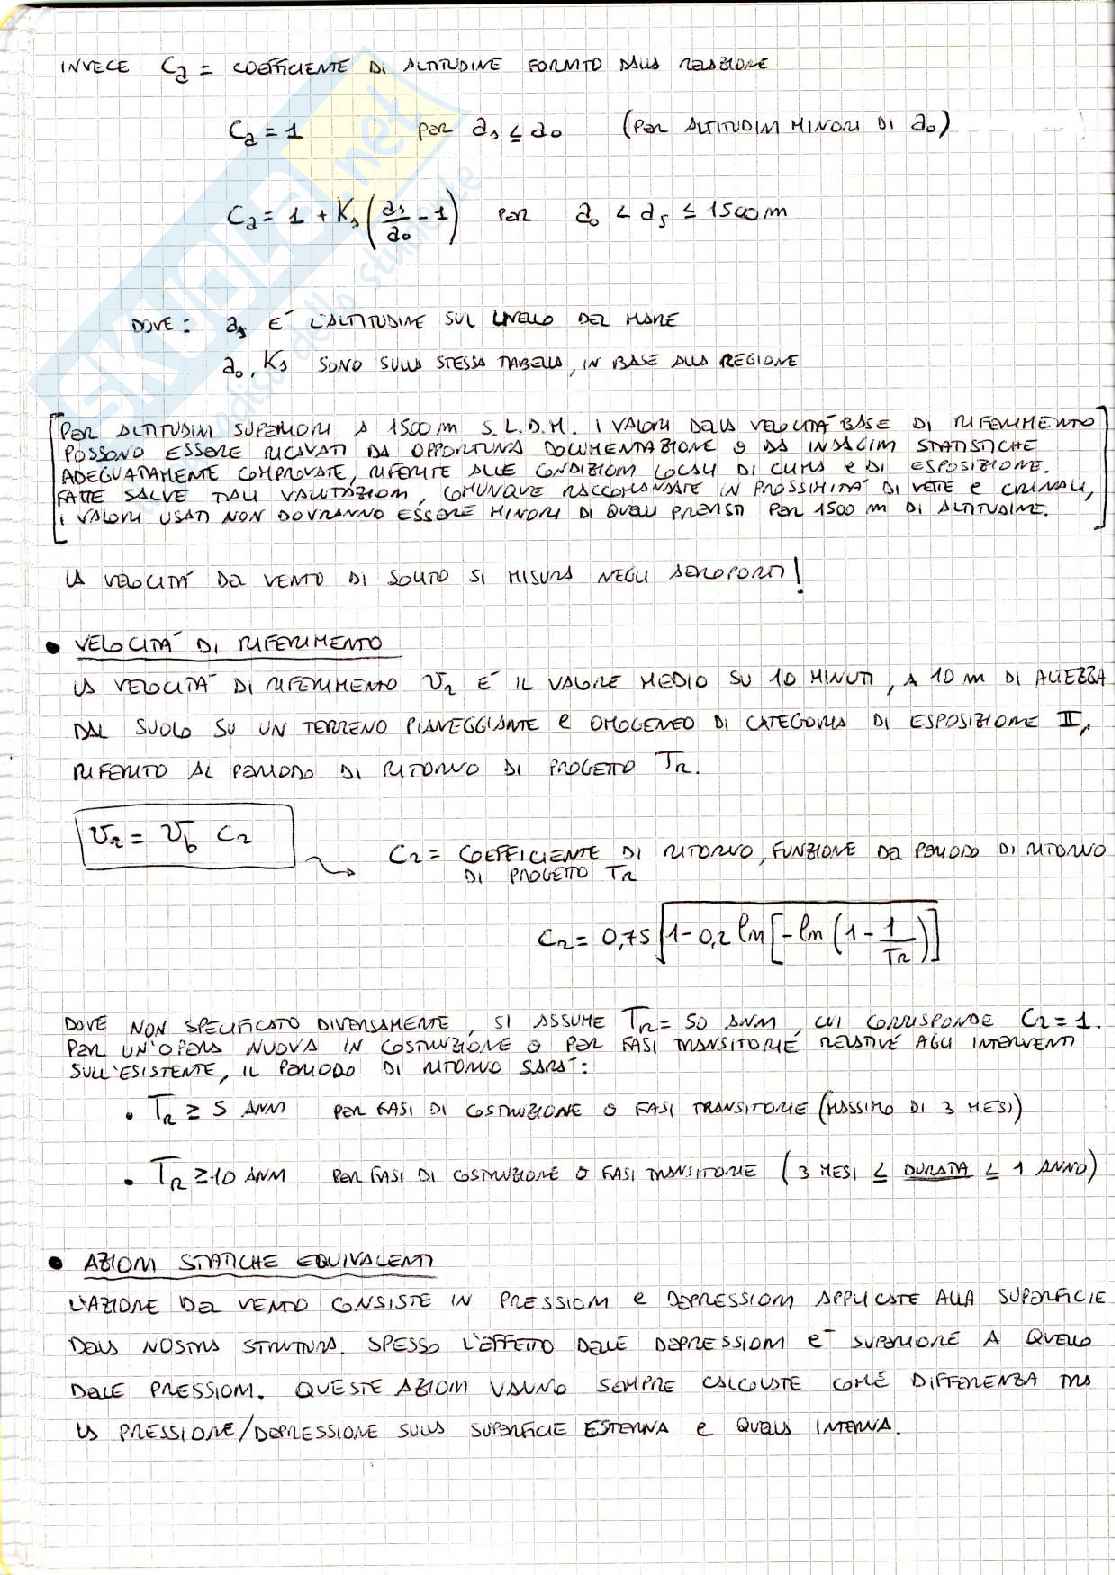 INVECE Ca = COEFFICIENTE DI ALTITUDINE FORNITO DALLA RELAZIONE
Ca = 1 per as ≤ a0 (PER ALTITUDINI MINORI DI a0)
Ca = 1 + Ks (as/a0 - 1) per a0 < as ≤ 1500 m
DOVE: as E' L'ALTITUDINE SUL LIVELLO DEL MARE
a0, Ks SONO SULLA STESSA TABELLA, IN BASE ALLA REGIONE
[PER ALTITUDINI SUPERIORI A 1500 m S.L.D.M. I VALORI DELLA VELOCITÀ BASE DI RIFERIMENTO
POSSONO ESSERE RICAVATI DA OPPORTUNA DOCUMENTAZIONE O DA INDAGINI STATISTICHE
ADEGUATAMENTE COMPROVATE, RIFERITE ALLE CONDIZIONI LOCALI DI CLIMA e DI ESPOSIZIONE.
FATTE SALVE TALI VALUTAZIONI, COMUNQUE RACCOMANDATE IN PROSSIMITÀ DI VETTE e CRINALI,
I VALORI USATI NON DOVRANNO ESSERE MINORI DI QUELLI PREVISTI PER 1500 m DI ALTITUDINE.]
LA VELOCITÀ DEL VENTO DI SOLITO SI MISURA NEGLI AEROPORTI!
• VELOCITÀ DI RIFERIMENTO
LA VELOCITÀ DI RIFERIMENTO vr E' IL VALORE MEDIO SU 10 MINUTI, A 10 m DI ALTEZZA
DAL SUOLO SU UN TERRENO PIANEGGIANTE e OMOGENEO DI CATEGORIA DI ESPOSIZIONE II,
RIFERITO AL PERIODO DI RITORNO DI PROGETTO TR.
vr = vb cr
cr = COEFFICIENTE DI RITORNO, FUNZIONE DEL PERIODO DI RITORNO
DI PROGETTO TR
cr = 0,75 √(1 - 0,2 ln[-ln(1 - 1/TR)])
DOVE NON SPECIFICATO DIVERSAMENTE, SI ASSUME TR = 50 ANNI, CUI CORRISPONDE Cr = 1.
PER UN'OPERA NUOVA IN COSTRUZIONE O PER FASI TRANSITORIE RELATIVE AGLI INTERVENTI
SULL'ESISTENTE, IL PERIODO DI RITORNO SARÀ:
• TR ≥ 5 ANNI PER FASI DI COSTRUZIONE O FASI TRANSITORIE (MASSIMO DI 3 MESI)
• TR ≥ 10 ANNI PER FASI DI COSTRUZIONE O FASI TRANSITORIE (3 MESI ≤ DURATA ≤ 1 ANNO)
• AZIONI STATICHE EQUIVALENTI
L'AZIONE DEL VENTO CONSISTE IN PRESSIONI e DEPRESSIONI APPLICATE ALLA SUPERFICIE
DELLA NOSTRA STRUTTURA. SPESSO L'EFFETTO DELLE DEPRESSIONI E' SUPERIORE A QUELLO
DELLE PRESSIONI. QUESTE AZIONI VANNO SEMPRE CALCOLATE COME DIFFERENZA TRA
LA PRESSIONE/DEPRESSIONE SULLA SUPERFICIE ESTERNA e QUELLA INTERNA.